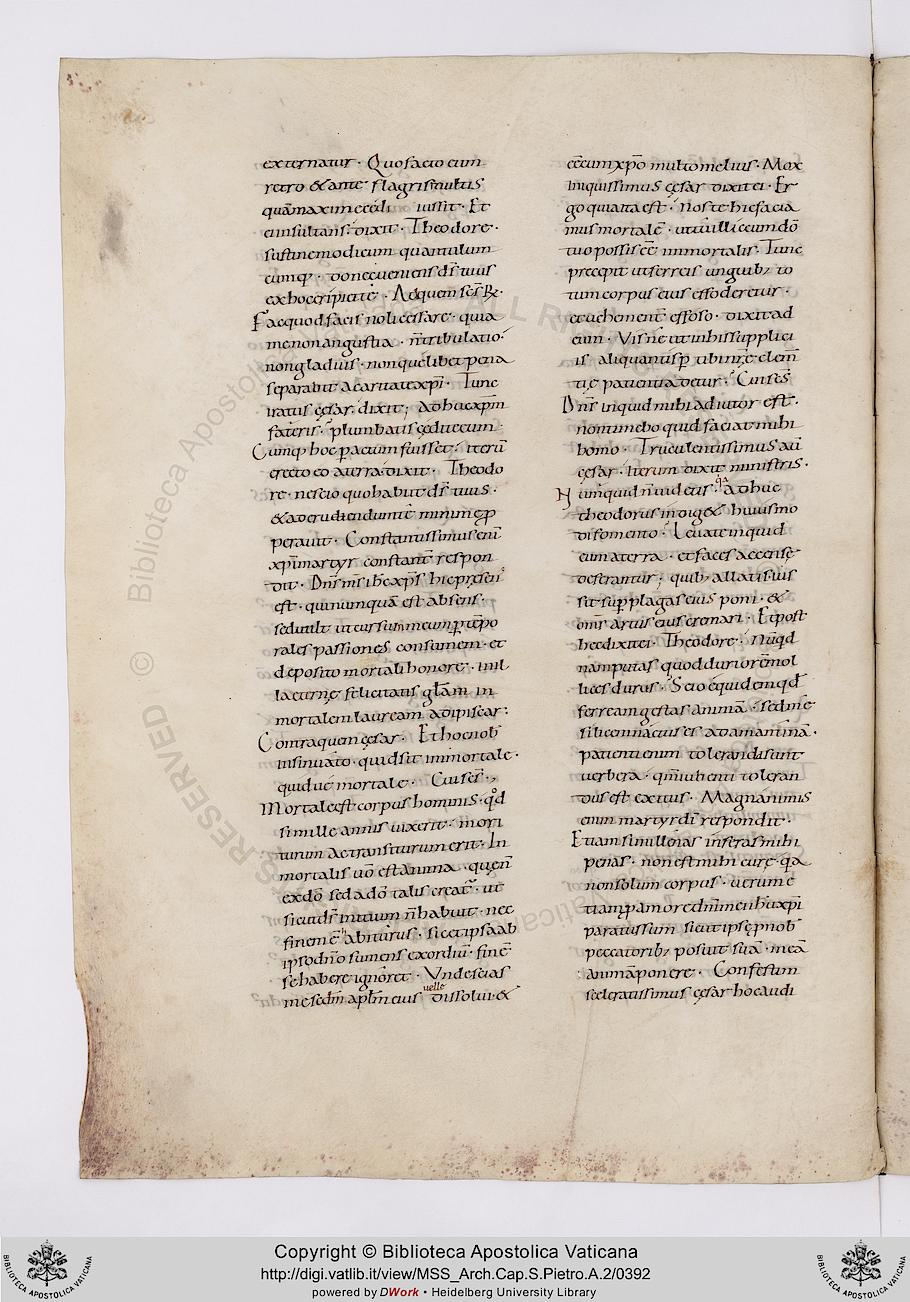 externatur · Quo facto eum
retro & ante flagris multis
quã maxime cedi iussit · Et
ei insultans · dixit · Theodore ·
sustine modicum quantulum
cumq; · donec ueniens ds̃ tuus
ex hoc eripiat te · Ad quem sc̃s R̃ ·
Fac quod facis noli cessare · quia
me non angustia · ñ tribulatio ·
non gladius · non quelibet pena
separabit a caritate xp̃i · Tunc
iratus cęsar · dixit ; adhuc xp̃m
fateris · plumbatis cędite eum ·
Cumq; hoc peractum fuisset · iterũ
erecto eo a terra · dixit · Theodo
re · nescio quo habiit ds̃ tuus ·
& ad erudiendum te minime p
perauit · Constantissimus eni
xp̃i martyr constant̃ respon
dit · Dñs ms̃ ih̃c xp̃s hic pręsens
est · qui numquã est absens ·
sed uult ut cursum meum p tẽpo
rales passiones consumem · et
deposito mortali honore · mil
la eternę felicitatis gl̃am in
mortalem lauream adipiscar ·
Contra quem cęsar · Et hoc nob
insinuato · quid sit inmortale ·
quid ue mortale · Cui sc̃s ·,
Mortale est corpus hominis · qd̃
si mille annis uixerit · mori
turum ac transiturum erit · In
mortalis uõ est anima · quẽ ñ
ex dõ sed a dõ talis creat̃ · ut
sicut ds̃ initium ñ habuit · nec
finem ẽ habiturus · sic et ipsa ab
ipso dñ o sumens exordiũ · finẽ
se habere ignoret · Unde scias
me secdm̃ apl̃m eius uelle dissolui · &
eẽ cum xp̃o multo melius · Mox
iniquissimus cęsar dixit ei · Er
go quia ita est · nos te hic facia
mus mortalẽ · ut in illic cum dõ
tuo possis eẽ immortalis · Tunc
precepit ut ferreis unguib; to
tum corpus eius effoderetur ·
et uehement̃ effosso · dixit ad
eum · Vis ne ut in his supplici
is · aliquantisp tibi nr̃e clem̃
tię patientia detur · Cui sc̃s
Dñs inquid mihi adiutor est ·
non timebo quid faciat mihi
homo · Truculentissimus aũ
cęsar · Iterum dixit ministris ·
Numquid ñ uidetis · qa adhuc
theodorus indig& huiusmo
di fomento · Leuate inquid
eum a terra · et faces accensę
deferantur ; quib; allatis ius
sit sup plagas eius poni · &
om̃s artus eius cremari · Et post
hec dixit ei · Theodore · Nũqd
nam putas quod durior es mol
lies durus · Scio equidem qd̃
ferream gestas animã · sed me
si licenn actus es adamantinã ·
patienti enim toleranda sunt
uerbera · qm̃ iubenti toleran
dus est exitus · Magnanimis
enim martyr dĩ respondit ·
Etiam si millenas inferas mihi
penas · non est mihi curę · qa
non solum corpus · uerum &
tiam p amore dñi mei ih̃u xp̃i
paratus sum sicut ipse p nob
peccatorib; posuit suã · meã
animã ponere · Confestim
sceleratissimus cęsar hoc audi
Copyright © Biblioteca Apostolica Vaticana
http://digi.vatlib.it/view/MSS_Arch.Cap.S.Pietro.A.2/0392
powered by DWork • Heidelberg University Library